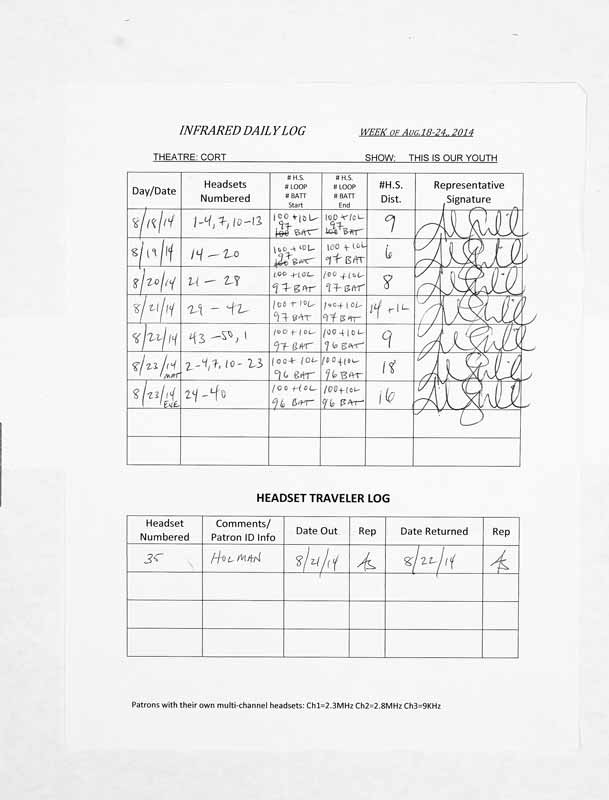 INFRARED DAILY LOG WEEK OF AUG.18-24,, 2014
THEATRE: CORT SHOW: THIS IS OUR YOUTH
Day/Date Headsets Numbered # H.S. # LOOP # BATT Start # H.S. # LOOP # BATT End #H.S. Dist. Representative Signature
8/18/14 1-4, 7, 10-13 100+10L 97 BAT 100+10L 97 BAT 9
8/19/14 14-20 100+10L 97 BAT 100+10L 97 BAT 6
8/20/14 21-28 100+10L 97 BAT 100+10L 97 BAT 8
8/21/14 29-42 100+10L 97 BAT 100+10L 97 BAT 14+1L
8/22/14 43-50, 1 100+10L 97 BAT 100+10L 96 BAT 9
8/23/14 MAT 2-4, 7, 10-23 100+10L 96 BAT 100+10L 96 BAT 18
8/23/14 EVE 24-40 100+10L 96 BAT 100+10L 96 BAT 16
HEADSET TRAVELER LOG
Headset Numbered Comments/ Patron ID Info Date Out Rep Date Returned Rep
35 HOLMAN 8/21/14 AS 8/22/14 AS
Patrons with their own multi-channel headsets: Ch1=2.3MHz Ch2=2.8MHz Ch3=9KHz